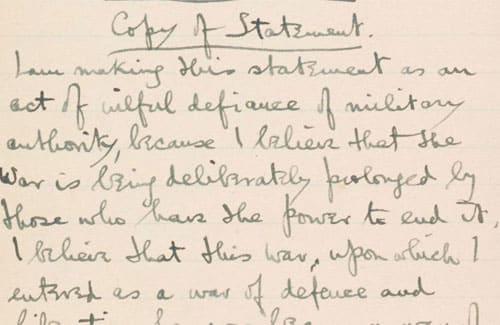 Copy of Statement.
I am making this statement as an
act of wilful defiance of military
authority, because I believe that the
War is being deliberately prolonged by
those who have the power to end it.
I believe that this war, upon which I
entered as a war of defence and